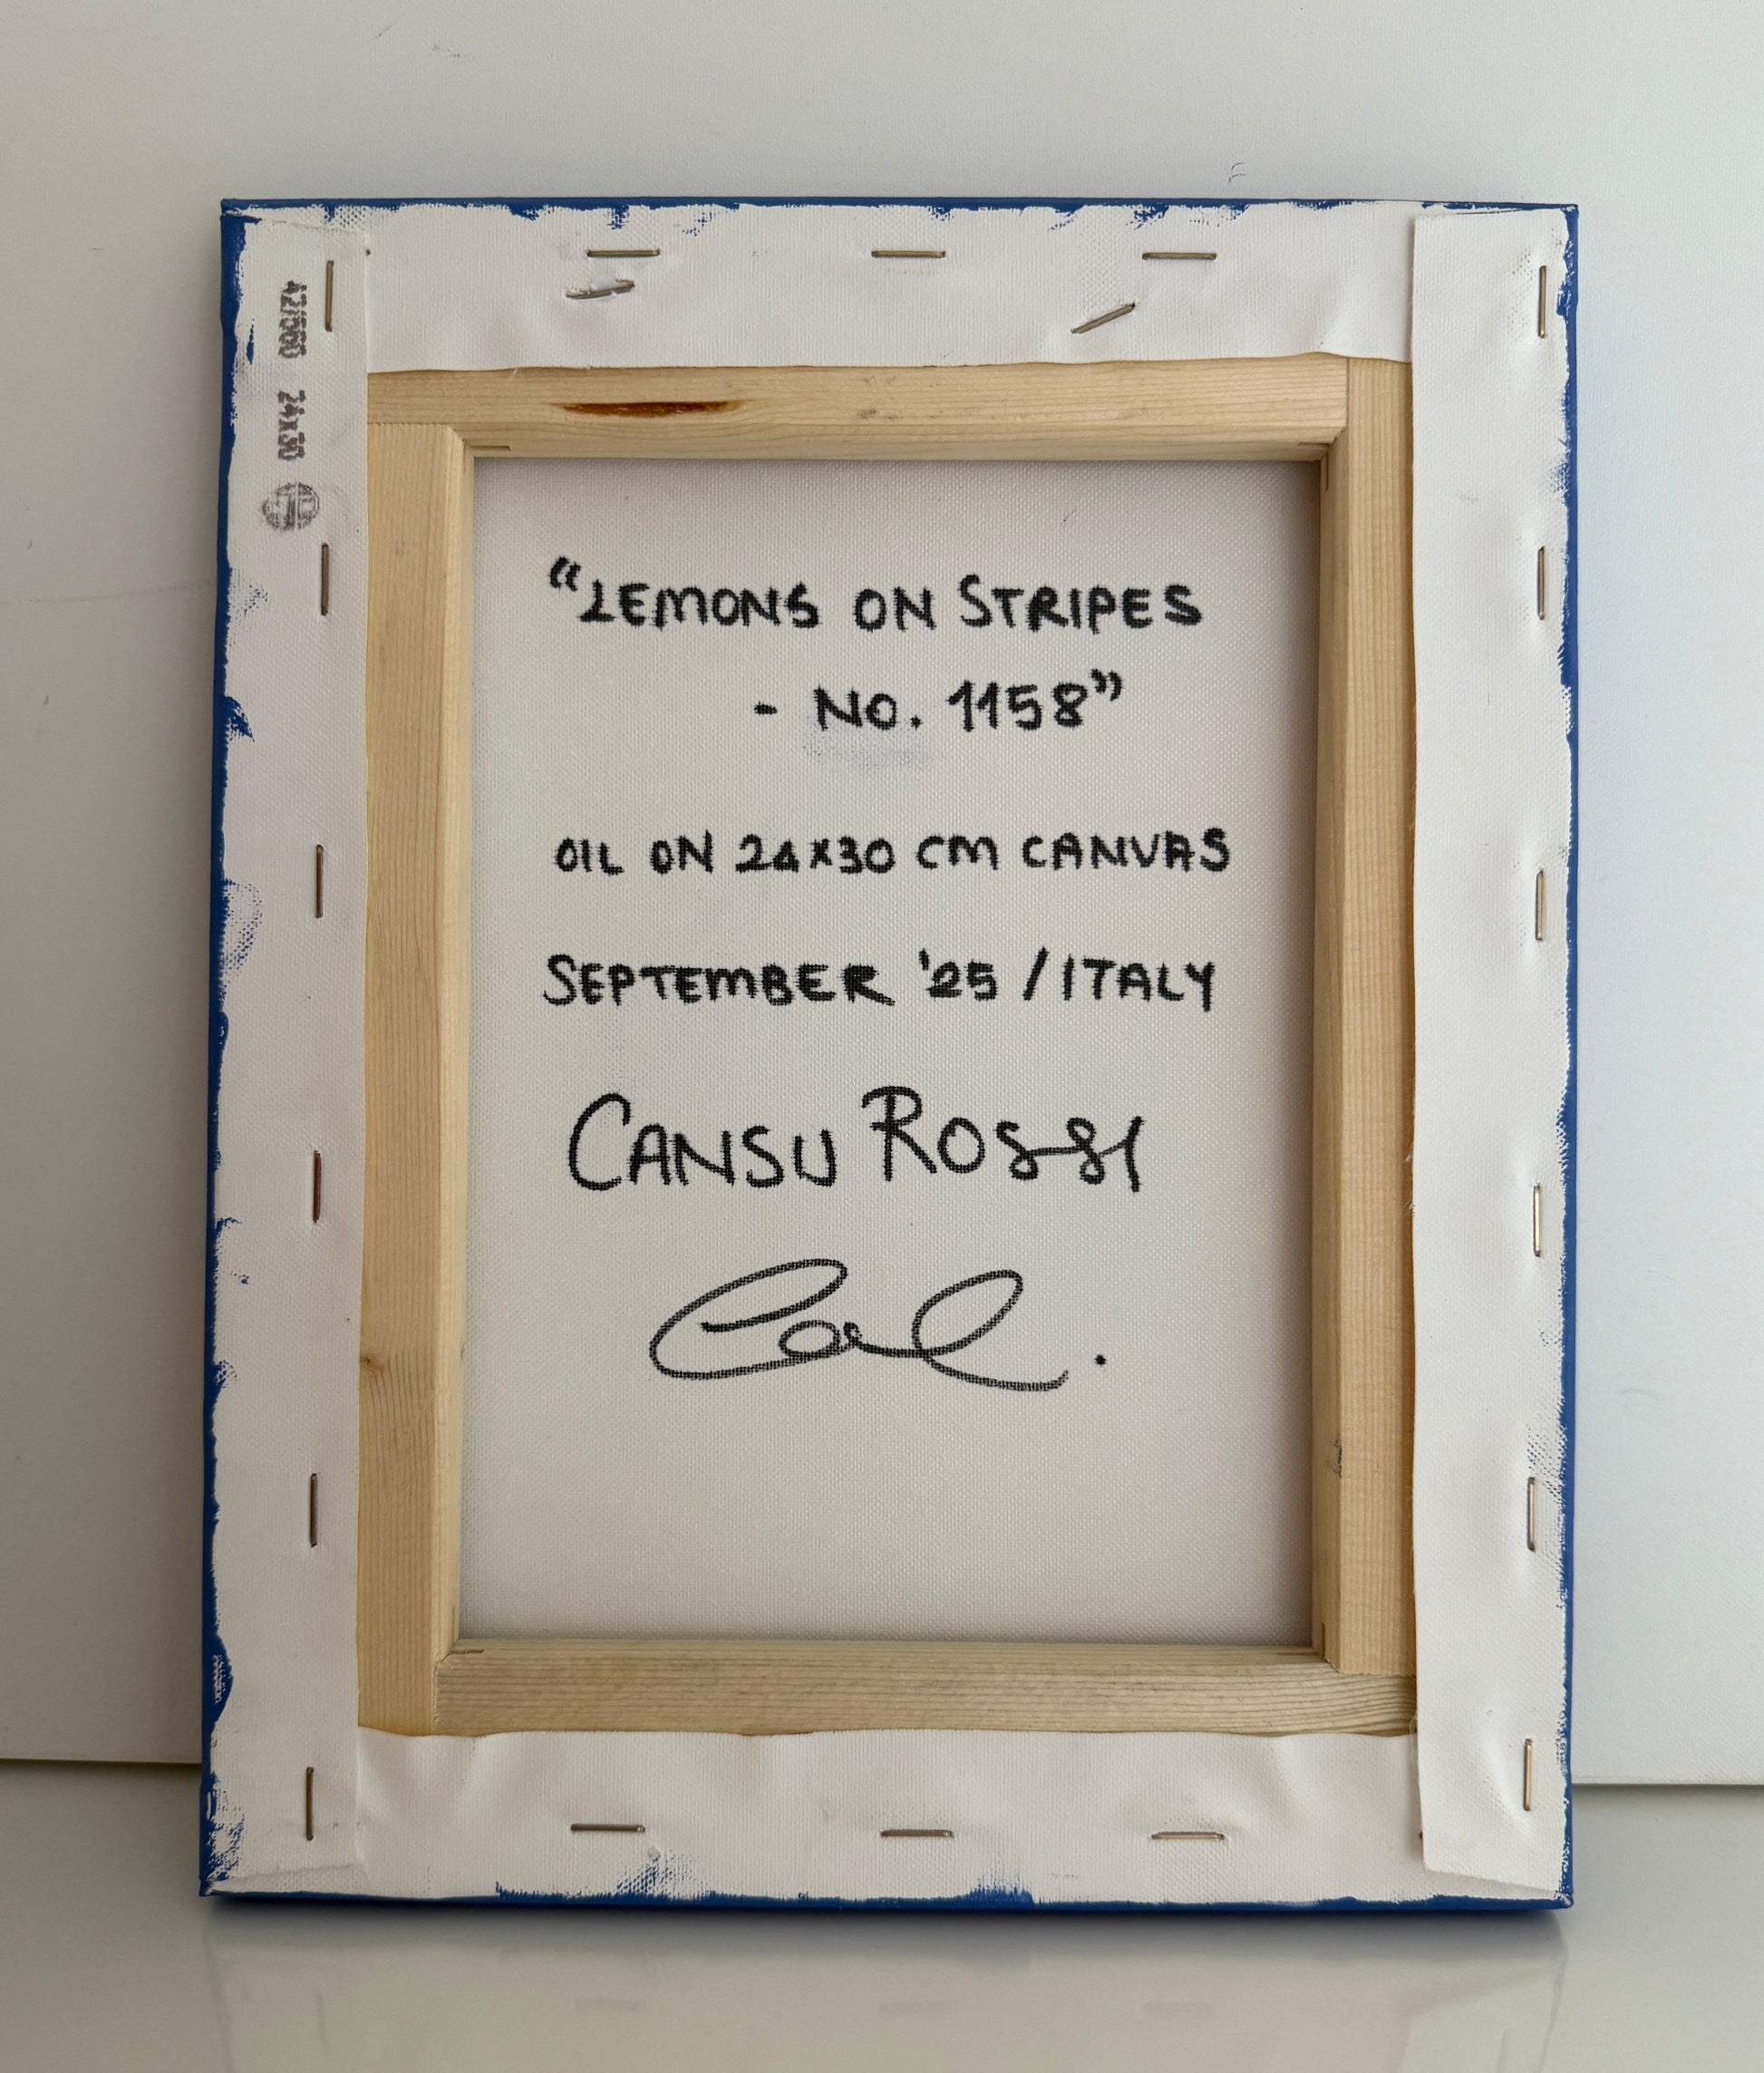 “LEMONS ON STRIPES
- NO. 1158”
OIL ON 24x30 CM CANVAS
SEPTEMBER '25 / ITALY
CANSU ROSSI
24x30